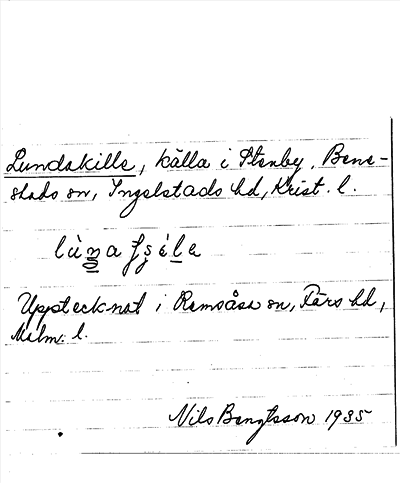 Lundakilla, källa i Stenby, Bene-
stads sn, Ingelstads hd, Krist. l.
Upptecknat i Ramsåsa sn, Färs hd,
Malm. l.
Nils Bengtsson 1935